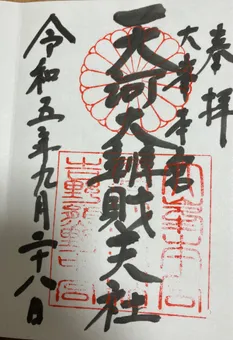 奉拝
大峯本宮
天河大辨財天社
令和五年九月二十八日
吉野熊野中宮